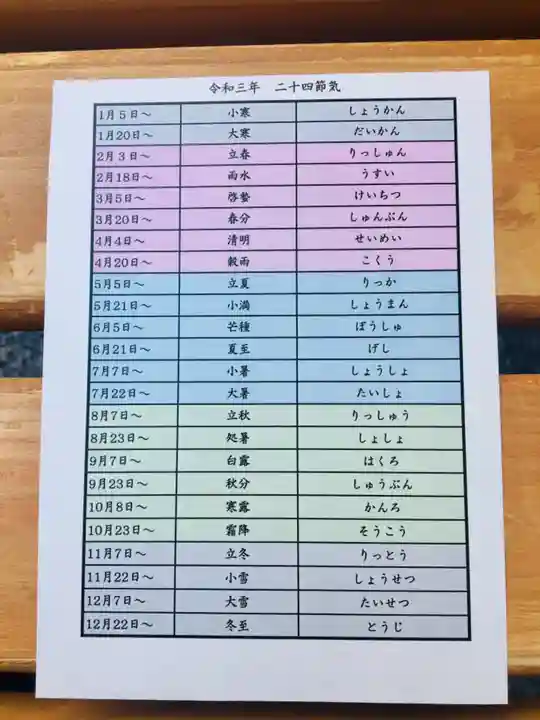 令和三年 二十四節気
1月5日～ 小寒 しょうかん
1月20日～ 大寒 だいかん
2月3日～ 立春 りっしゅん
2月18日～ 雨水 うすい
3月5日～ 啓蟄 けいちつ
3月20日～ 春分 しゅんぶん
4月4日～ 清明 せいめい
4月20日～ 穀雨 こくう
5月5日～ 立夏 りっか
5月21日～ 小満 しょうまん
6月5日～ 芒種 ぼうしゅ
6月21日～ 夏至 げし
7月7日～ 小暑 しょうしょ
7月22日～ 大暑 たいしょ
8月7日～ 立秋 りっしゅう
8月23日～ 処暑 しょしょ
9月7日～ 白露 はくろ
9月23日～ 秋分 しゅうぶん
10月8日～ 寒露 かんろ
10月23日～ 霜降 そうこう
11月7日～ 立冬 りっとう
11月22日～ 小雪 しょうせつ
12月7日～ 大雪 たいせつ
12月22日～ 冬至 とうじ